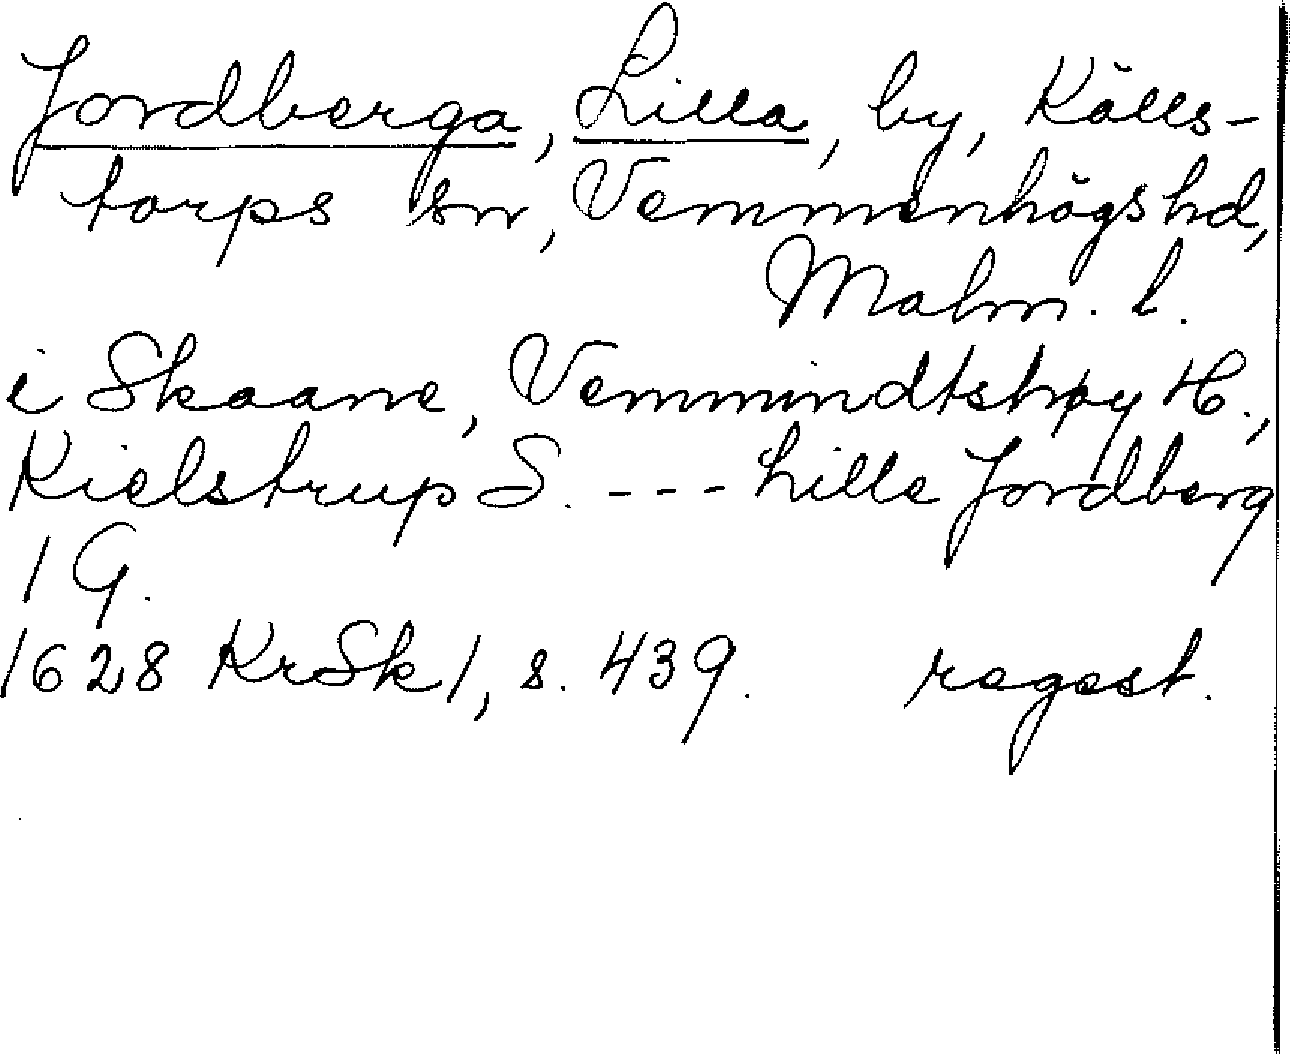 Jordberga, Lilla, by, Källs-
torps sn, Vemmenhögs hd,
Malm. l.
i Skaane, Vemmindtshøy H.,
Kielstrup S. --- Lille Jordberg
1 G.
1628 KrSk 1, s. 439. regest.